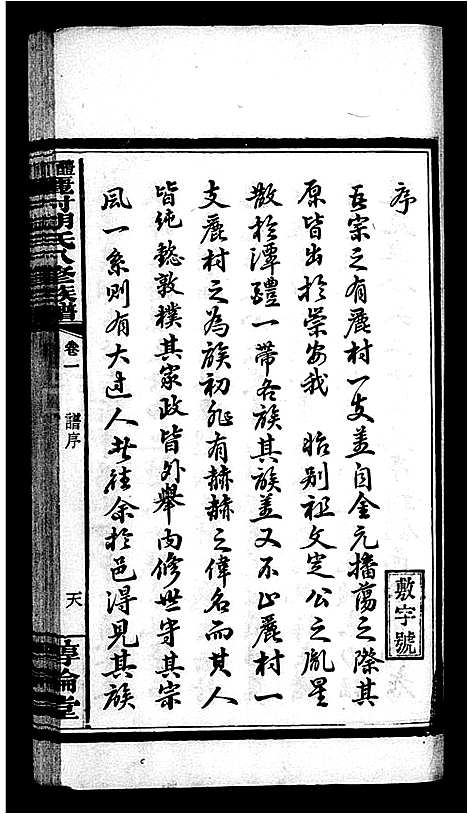 序
吾宗之有麗村一支蓋自金元播蕩之際其
原皆出於崇安我 貽別祖文定公之胤星
散於潭醴一帶各族其族蓋又不止麗村一
支麗村之為族初非有赫赫之偉名而其人
皆純懿敦樸其家政皆外舉內修世守其宗
風一系則有大過人者往余於邑得見其族
敷字號
醴麗村胡氏八修族譜
卷一
譜序
天
敦倫堂